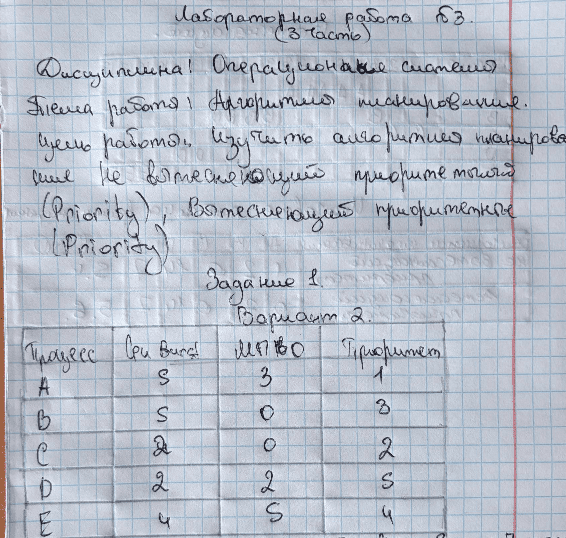 Лабораторная работа №3.
(3 часть)
Дисциплина: Операционные системы
Тема работы: Алгоритмы планирование.
Цель работы: Изучить алгоритмы планирова
ния Не вытесняющий приоритетный
(Priority), Вытесняющий приоритетные
(Priority)
Задание 1.
Вариант 2.
Процесс Cpu Burst МПВО Приоритет
A 5 3 1
B 5 0 3
C 2 0 2
D 2 2 5
E 4 5 4